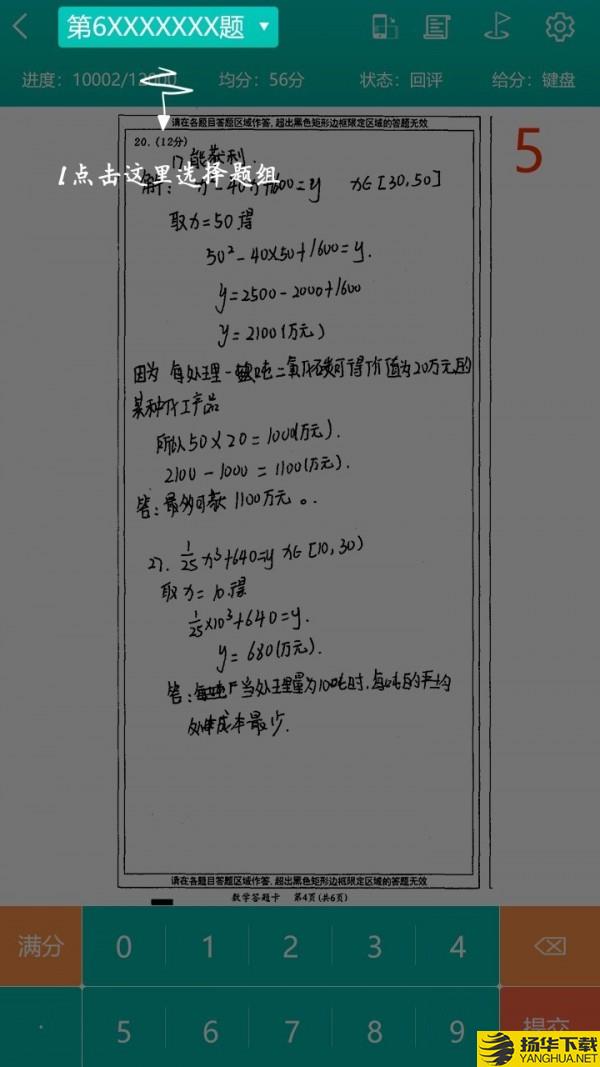 第6XXXXXXX题
进度：10002/12000 均分：56分 状态：回评 给分：键盘
请在各题目答题区域作答,超出黑色矩形边框限定区域的答题无效
20.(12分)
5
1点击这里选择题组
解： x∈[30,50]
取x=50得
50²-40×50+1600=y.
y=2500-2000+1600
y=2100(万元)
因为 每处理一吨二氧化碳可得价值为20万元的
某种化工产品
所以50×20=1000(万元).
2100-1000=1100(万元).
答：最多可获1100万元。
27. 1/25 x³+640=y x∈[10,30)
取x=10.得
1/25×10³+640=y.
y=680(万元).
请在各题目答题区域作答,超出黑色矩形边框限定区域的答题无效
数学答题卡 第4页(共6页)
满分 0 1 2 3 4
. 5 6 7 8 9 提交
扬华下载
YANGHUA.NET